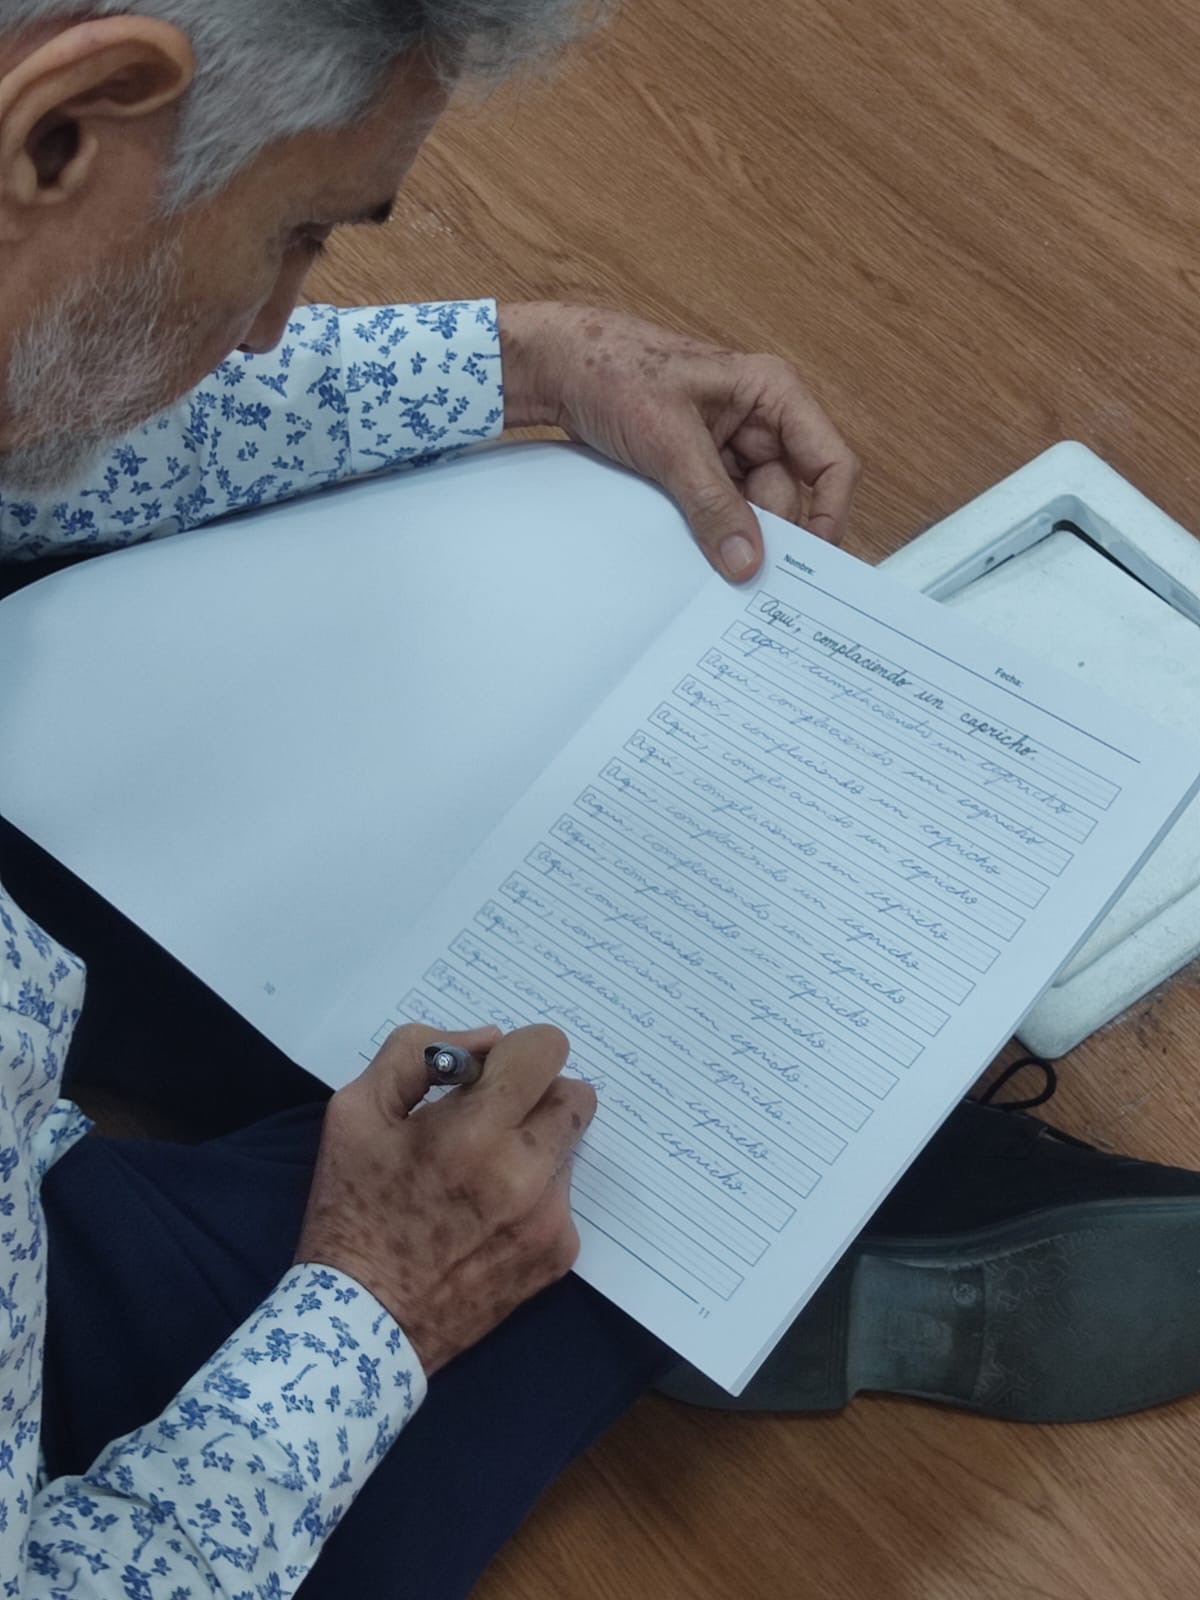 Nombre:
Fecha:
Aquí, complaciendo un capricho.
Aquí, cumplaciendo un capricho
Aquí, complaciendo un capricho
Aquí, complaciendo un capricho
Aquí, complaciendo un capricho
Aquí, complaciendo un capricho
Aquí, complaciendo un capricho
Aquí, complaciendo un capricho
Aquí, complaciendo un capricho
Aquí, complaciendo un capricho.
Aquí, complaciendo un capricho.
Aquí, complaciendo un capricho.
Aquí, complaciendo un capricho
Aquí, un capricho.
Aquí
10
11